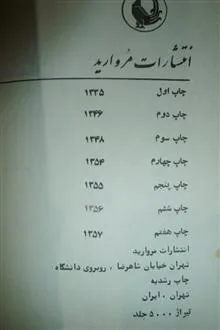 انتشارات مروارید
چاپ اول ۱۳۳۵
چاپ دوم ۱۳۴۶
چاپ سوم ۱۳۴۸
چاپ چهارم ۱۳۵۴
چاپ پنجم ۱۳۵۵
چاپ ششم ۱۳۵۶
چاپ هفتم ۱۳۵۷
انتشارات مروارید
تهران خیابان شاهرضا ، روبروی دانشگاه
چاپ رشدیه
تهران ، ایران
تیراژ ۵۰۰۰ جلد